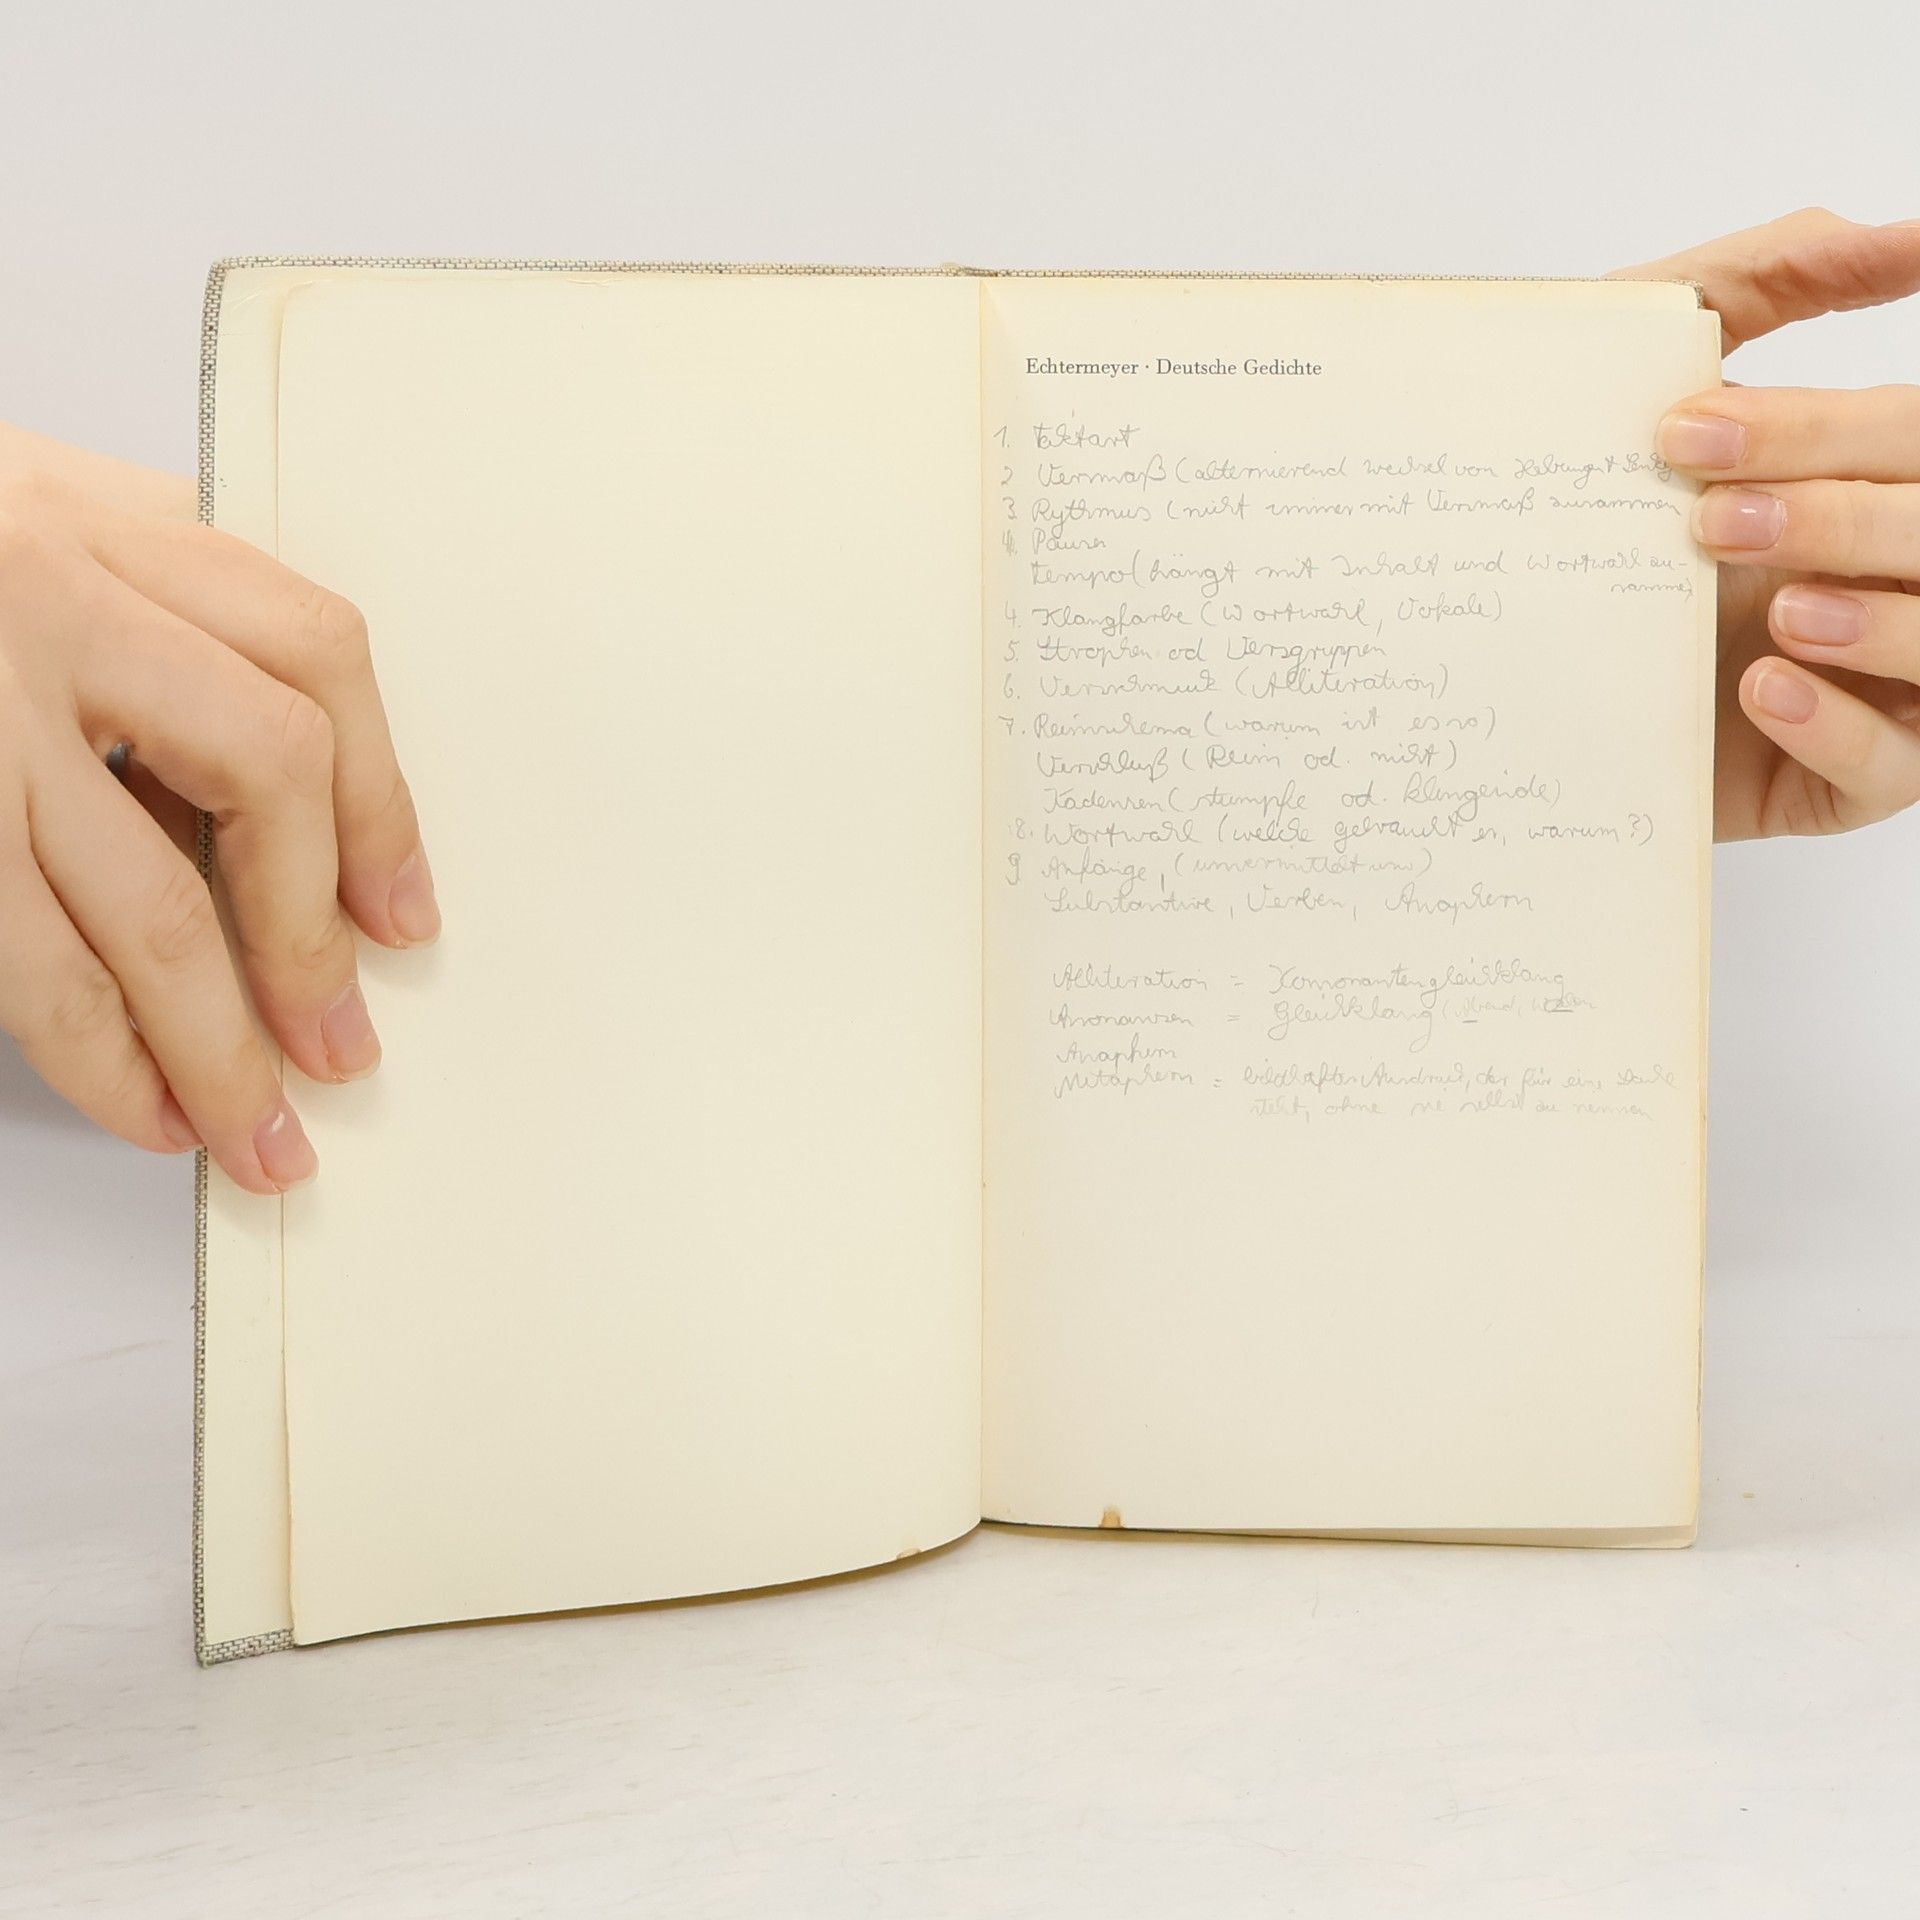 Echtermeyer · Deutsche Gedichte
1. Taktart
2 Versmaß (alternierend wechsel von Hebungen +
3. Rythmus (nicht immer mit Versmaß zusammen
4. Pausen
tempo (hängt mit Inhalt und Wortwahl zu-
sammen)
4. Klangfarbe (Wortwahl, Vokale)
5. Strophen od Versgruppen
6. Versschmuck (Alliteration)
7. Reimschema (warum ist es so)
Versschluß (Reim od. nicht)
Kadenzen (stumpfe od. klingende)
8. Wortwahl (welche gebraucht er, warum?)
9 Anfänge, (unvermittelt usw)
Substantive, Verben, Anaphern
Alliteration = Konsonantengleichklang
Assonanzen = Gleichklang (Abend,
Anaphern
Metaphern = bildhafter Ausdruck, der für eine Sache
steht, ohne sie selbst zu nennen